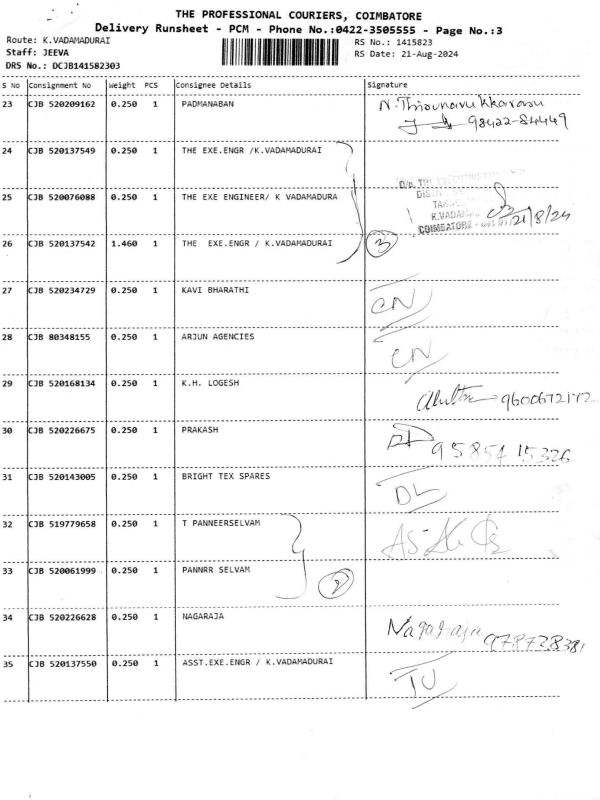 THE PROFESSIONAL COURIERS, COIMBATORE
Delivery Runsheet - PCM - Phone No.:0422-3505555 - Page No.:3
Route: K.VADAMADURAI
RS No.: 1415823
Staff: JEEVA
RS Date: 21-Aug-2024
DRS No.: DCJB141582303
S No Consignment No Weight PCS Consignee Details Signature
23 CJB 520209162 0.250 1 PADMANABAN N. Thirunavukkarasu
98422-84449
24 CJB 520137549 0.250 1 THE EXE.ENGR /K.VADAMADURAI
25 CJB 520076088 0.250 1 THE EXE ENGINEER/ K VADAMADURA
K.VADAM
COIMBATORE
21/8/24
26 CJB 520137542 1.460 1 THE EXE.ENGR / K.VADAMADURAI 3
27 CJB 520234729 0.250 1 KAVI BHARATHI CN
28 CJB 80348155 0.250 1 ARJUN AGENCIES CN
29 CJB 520168134 0.250 1 K.H. LOGESH 9600672172
30 CJB 520226675 0.250 1 PRAKASH 9585415326
31 CJB 520143005 0.250 1 BRIGHT TEX SPARES DL
32 CJB 519779658 0.250 1 T PANNEERSELVAM
33 CJB 520061999 0.250 1 PANNRR SELVAM 2
34 CJB 520226628 0.250 1 NAGARAJA Nagaraja 978728381
35 CJB 520137550 0.250 1 ASST.EXE.ENGR / K.VADAMADURAI TU